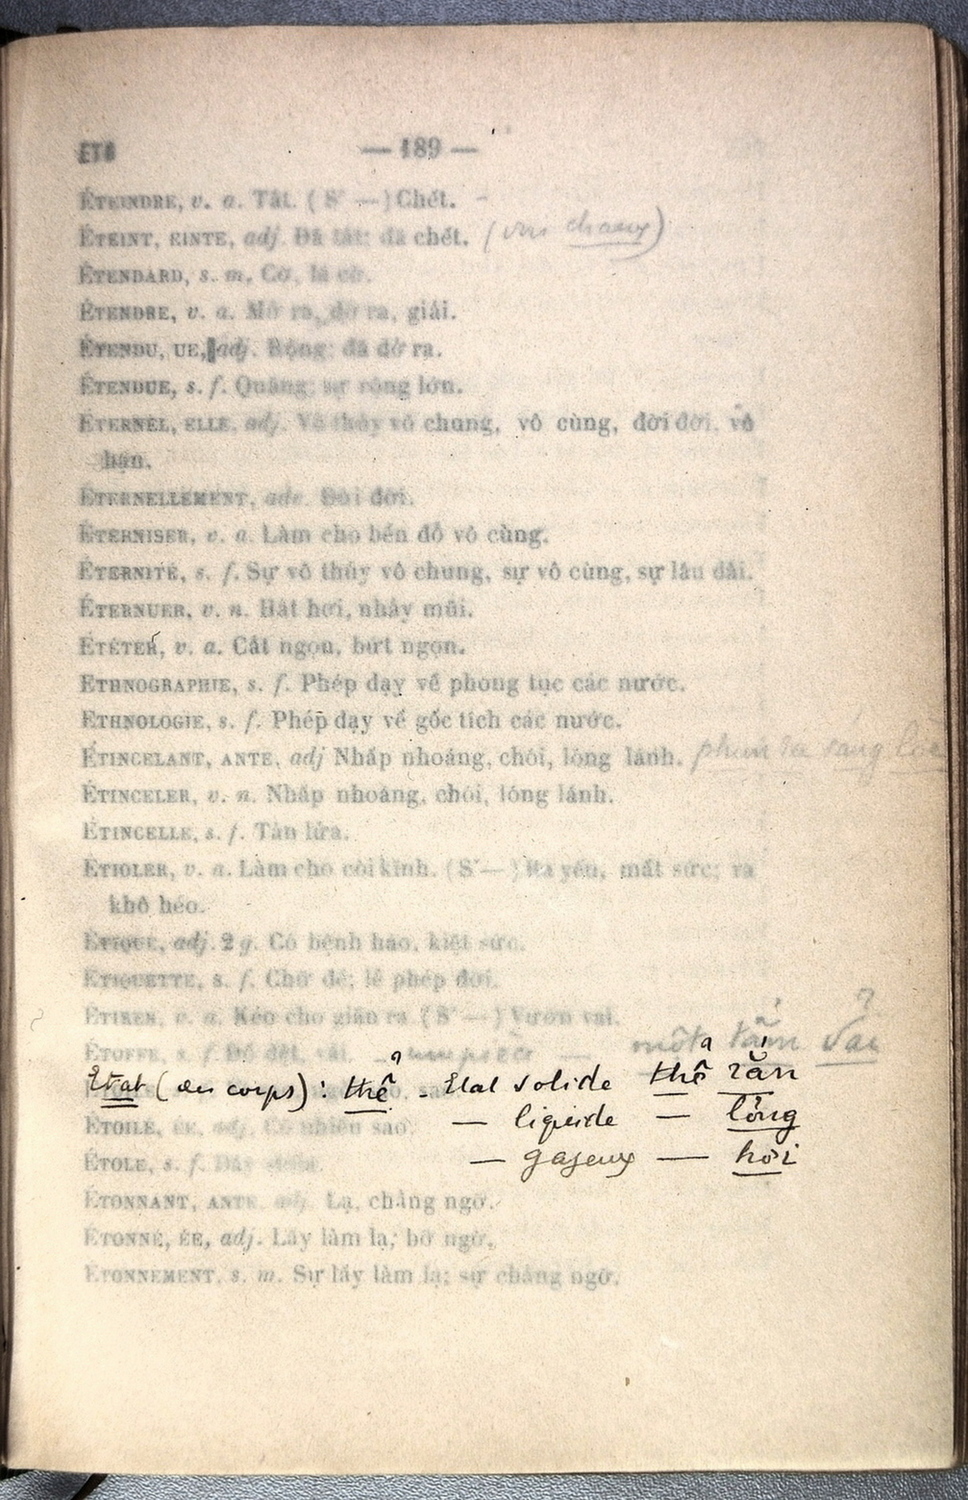 ÉTO — 189 —
ÉTEINDRE, v. a. Tắt. ( S' —) Chết.
ÉTEINT, EINTE, adj. Đã tắt; đã chết. (
ÉTENDARD, s. m. Cờ, lá cờ.
ÉTENDRE, v. a. Mở ra, dở ra, giải.
ÉTENDU, UE, adj. Rộng; đã dở ra.
ÉTENDUE, s. f. Quãng; sự rộng lớn.
ÉTERNEL, ELLE, adj. Vô thủy vô chung, vô cùng, đời đời, vô
hạn.
ÉTERNELLEMENT, adv. Đời đời.
ÉTERNISER, v. a. Làm cho bền đỗ vô cùng.
ÉTERNITÉ, s. f. Sự vô thủy vô chung, sự vô cùng, sự lâu dài.
ÉTERNUER, v. n. Hắt hơi, nhảy mũi.
ÉTÊTER, v. a. Cắt ngọn, bứt ngọn.
ETHNOGRAPHIE, s. f. Phép dạy về phong tục các nước.
ETHNOLOGIE, s. f. Phép dạy về gốc tích các nước.
ÉTINCELANT, ANTE, adj Nhấp nhoáng, chói, lóng lánh. phun ra sáng lòe
ÉTINCELER, v. n. Nhấp nhoáng, chói, lóng lánh.
ÉTINCELLE, s. f. Tàn lửa.
ÉTIOLER, v. a. Làm cho còi kĩnh. ( S' — ) Ra yếu, mất sức; ra
khô héo.
ÉTIQUE, adj. 2 g. Có bệnh hao, kiệt sức.
ÉTIQUETTE, s. f. Chữ đề; lễ phép đời.
ÉTIRER, v. a. Kéo cho giãn ra. ( S' — ) Vươn vai.
ÉTOFFE, s. f. Đồ dệt, vải. — une pièce — một tấm vải
Etat (des corps) : thể - Etat solide thể rắn
— liquide — lỏng
ÉTOILÉ, ÉE, adj. Có nhiều sao.
— gazeux — hơi
ÉTOLE, s. f. Dây
ÉTONNANT, ANTE adj. Lạ, chẳng ngờ.
ÉTONNÉ, ÉE, adj. Lấy làm lạ; bỡ ngỡ.
ETONNEMENT, s. m. Sự lấy làm lạ; sự chẳng ngờ.